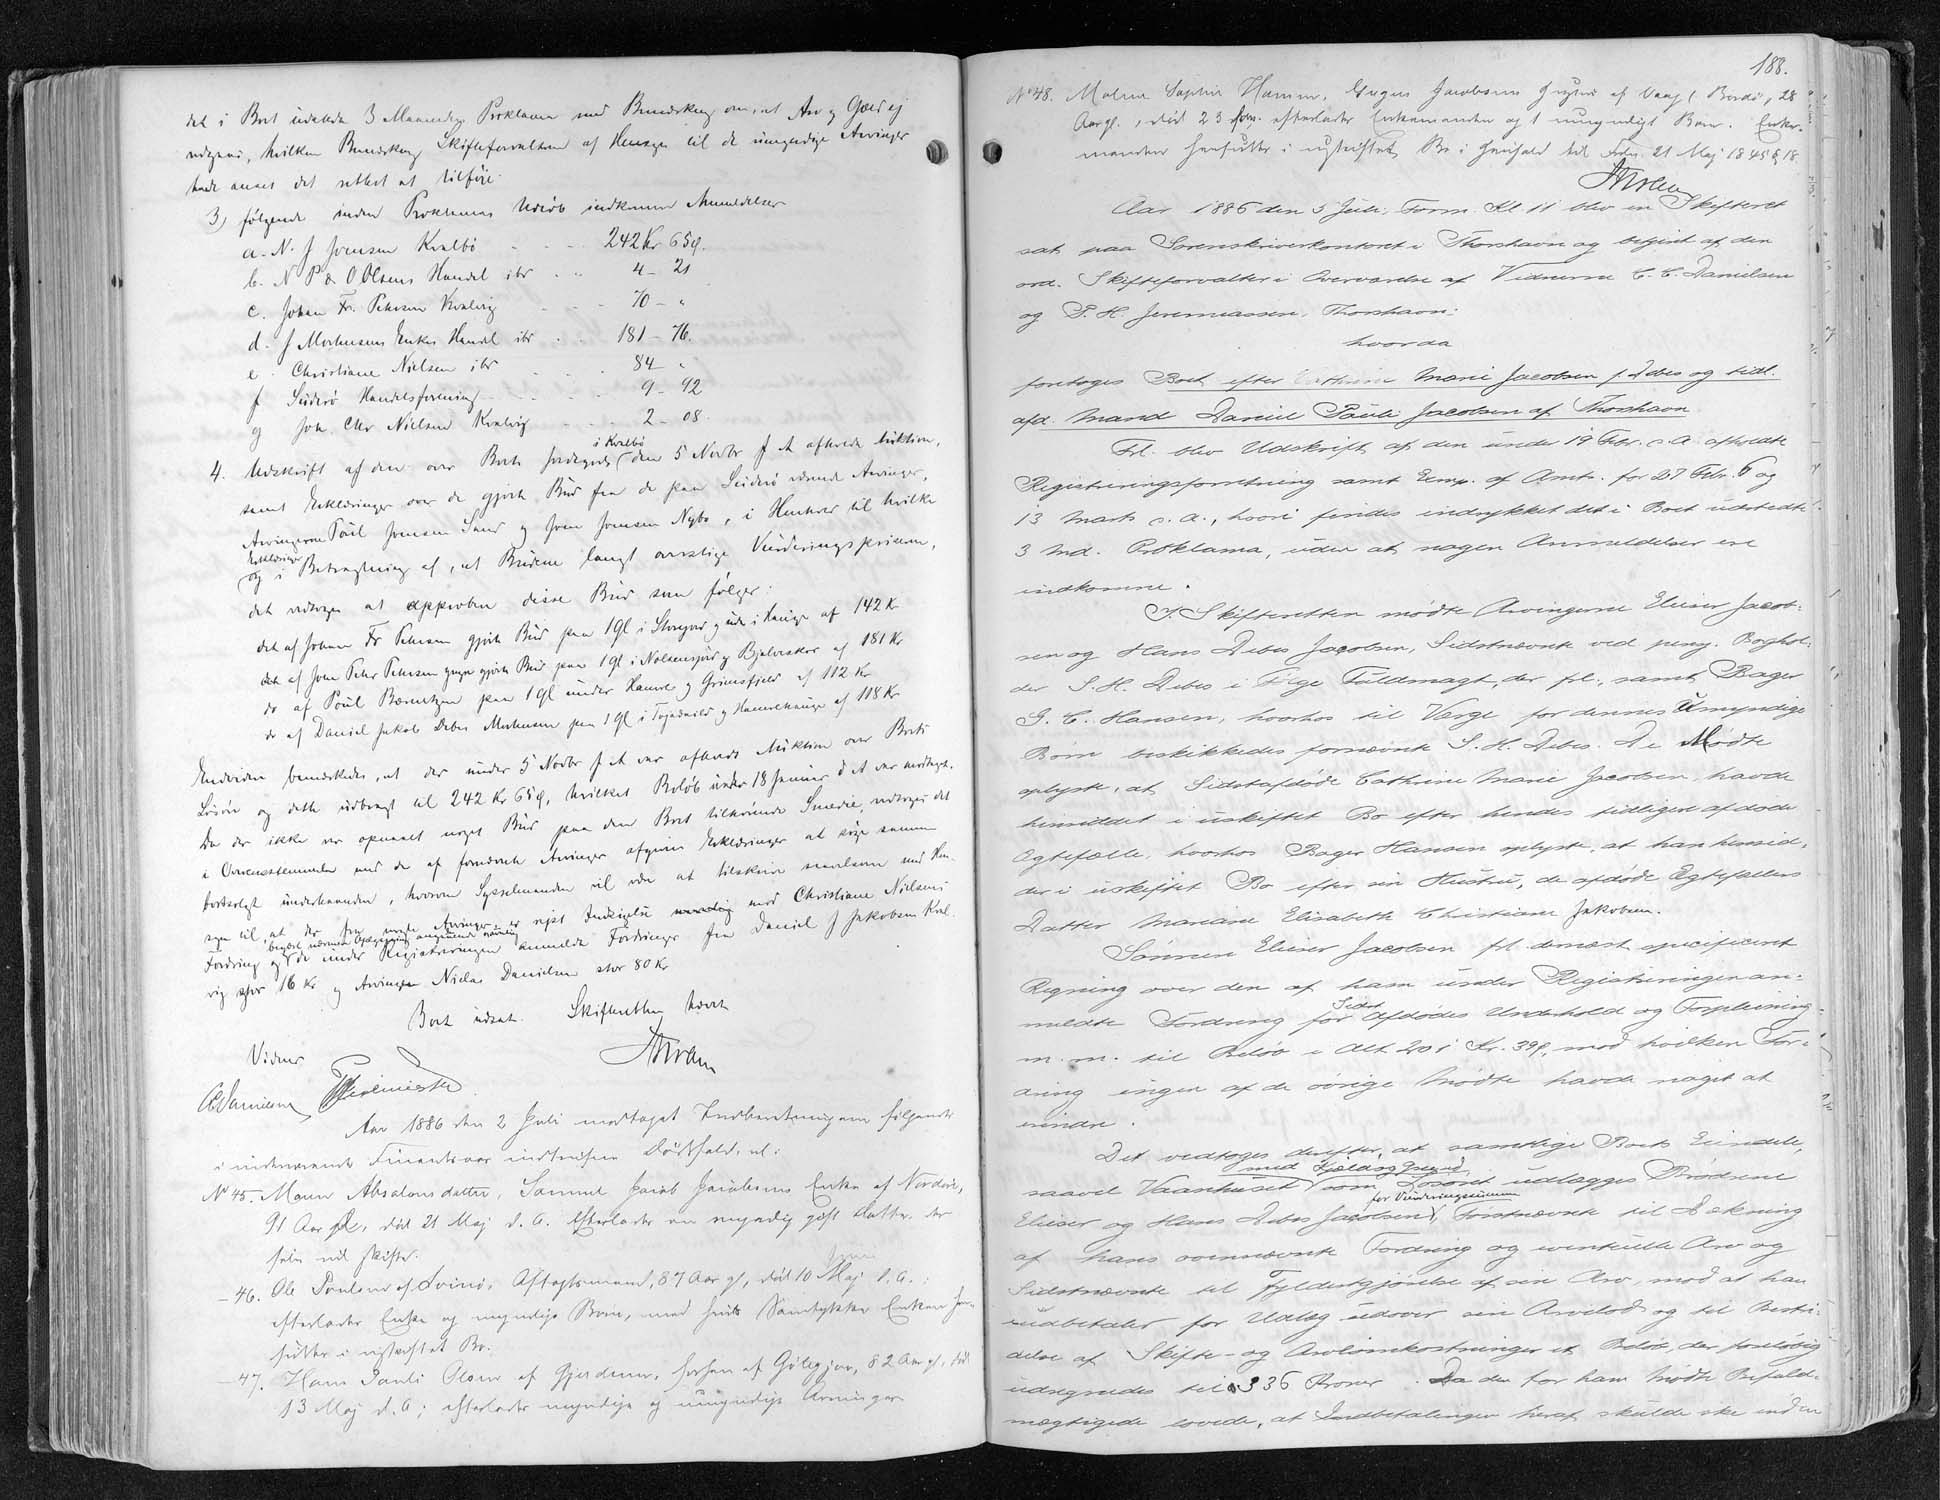 det i Boet udstedte 3 Maaneders Proklama med Bemærkning om, at Arv og Gæld ej
vedgaaes, hvilken Bemærkning Skifteforvalteren af Hensyn til de umyndige Arvinger
havde anset det rettest at tilføje.
3) følgende inden Proklamas Udløb indkomne Anmeldelser
a. N. J Joensen Kvalbø 242 Kr 65 ø.
b. N P & O Olsens Handel ibr 4 - 21
c. Johan Fr. Petersen Kvalvig 70 - "
d. J Mortensens Enkes Handel ibr 181 - 76.
e. Christiane Nielsen ibr 84 "
f Suderø Handelsforening 9 - 92
g Joh. Chr Nielsen Kvalvig 2 - 08.
4. Udskrift af den over Boets Jordegods i Kvalbø den 5 Novbr f A afholdte Auktion,
samt Erklæringer over de gjorte Bud fra de paa Suderø værende Arvinger,
Arvingerne Poul Joensen Sand og Joen Joensen Nybo, i Henhold til hvilke
Erklæringer og i Betragtning af, at Budene langt overstige Vurderingspriserne,
det vedtoges at approbere disse Bud som følger:
det af Johan Fr Petersen gjorte Bud paa 1 Gl i af 142 Kr
det af Joen Peter Petersen gjorte Bud paa 1 gl i og af 181 Kr
do af Poul Bærentzen paa 1 Gl under Hamre og Grimsfjeld af 112 Kr
do af Daniel Jakob Debes Mortensen paa 1 Gl i og af 118 Kr
Endvidere bemærkedes, at der under 5 Novbr f A var afholdt Auktion over Boets
Løsøre og dette udbragt til 242 Kr 65 ø, hvilket Beløb under 18 Januar d A var modtaget.
Da der ikke var opnaaet noget Bud paa den Boet tilhørende Smedie, vedtoges det
i Overensstemmelse med de af fornævnte Arvinger afgivne Erklæringer at søge samme
bortsolgt underhaanden, hvorom Sysselmanden vil være at tilskrive saavelsom med Hen-
syn til, at der fra nogle Arvinger er rejst Indsigelse mod Christiane Nielsens
Fordring og de under Registreringen anmeldte Fordringer fra Daniel J Jakobsen Kval-
vig stor 16 Kr og Arvingen Niclas Danielsen stor 80 Kr
Boet udsat. Skifteretten hævet
Vidner
CC Danielsen
Aar 1886 den 2 Juli modtaget Indberetning om følgende
i indeværende Finantsaar indtrufne Dødsfald, nl:
No 45. Maren Absalonsdatter, Samuel Jacob Jacobsens Enke af Nordøre,
91 Aar gl, død 21 Maj d. A. Efterlader en myndig gift Datter, der
selv vil skifte.
- 46. Ole Poulsen af Svinø, Aftægtsmand, 87 Aar gl, død 10 Maj d. A.;
efterlader Enke og myndige Børn, med hvis Samtykke Enken hen-
sidder i uskiftet Bo.
- 47. Hans Pauli Olsen af Gjerdum, 82 Aar gl, død
13 Maj d. A; efterlader myndige og umyndige Arvinger
188.
No 48. Malene Sophie Hansen, Jacobsens Hustru af Vaag Bordø, 28
Aar gl., død 23 efterlader Enkemanden og 1 umyndigt Barn. Enke-
manden hensidder i uskiftet Bo i Henhold til Fdn. 21 Maj 1845 § 18.
Aar 1886 den 5 Juli, Form. Kl. 11 blev en Skifteret
sat paa Sorenskriverkontoret i Thorshavn og betjent af den
ord. Skifteforvalter i Overværelse af Vidnerne C. C. Danielsen
og P. H. Jeremiassen, Thorshavn:
hvorda
foretoges Boet efter Cathrine Marie Jacobsen f. Debes og tidl.
afd. Mand Daniel Pauli Jacobsen af Thorshavn
Frl. blev Udskrift af den under 19 Febr. s. A. afholdte
Registreringsforretning samt Exmp. af Amts. for 27 Febr. 6 og
13 Marts s. A., hvori findes indrykket det i Boet udstedte
3 Md. Proklama, uden at nogen Anmeldelser ere
indkomne.
I Skifteretten mødte Arvingerne Elieser Jacob-
sen og Hans Debes Jacobsen, Sidstnævnte ved Boghol-
der S. H. Debes i Følge Fuldmagt, der frl., samt Bager
G. C. Hansen, hvorhos til Værge for dennes umyndige
Børn beskikkedes fornævnte S. H. Debes. De Mødte
oplyste, at Sidstafdøde Cathrine Marie Jacobsen, havde
hensiddet i uskiftet Bo efter hendes tidligere afdøde
Egtefælle, hvorhos Bager Hansen oplyste, at han hensid-
der i uskiftet Bo efter sin Hustru, de afdøde Egtefællers
Datter Mariane Elisabeth Christiane Jakobsen.
Sønnen Elieser Jacobsen frl. dernæst specificeret
Regning over den af ham under Registreringen an-
meldte Fordring for Sidst Afdødes Underhold og Forpleining
m. m. til Beløb i Alt 201 Kr. 39 ø, mod hvilken For-
dring ingen af de øvrige Mødte havde noget at
erindre.
Det vedtoges derefter, at samtlige Boets Eiendele,
saavel Vaanhuset med Kjeld og Grund som Løsøret udlægges Brødrene
Elieser og Hans Debes Jacobsen for Vurderingssummen, Førstnævnte til Dækning
af hans ovennævnte Fordring og eventuelle Arv og
Sidstnævnte til Fyldestgjørelse af sin Arv, mod at han
indbetaler for Udlæg udover sin Arvelod og til Bestri-
delse af Skifte- og Arveomkostninger et Beløb, der foreløbig
udregnedes til 336 Kroner. Da den for ham Mødte Befuld-
mægtigede lovede, at Indbetalingen heraf skulde ske inden